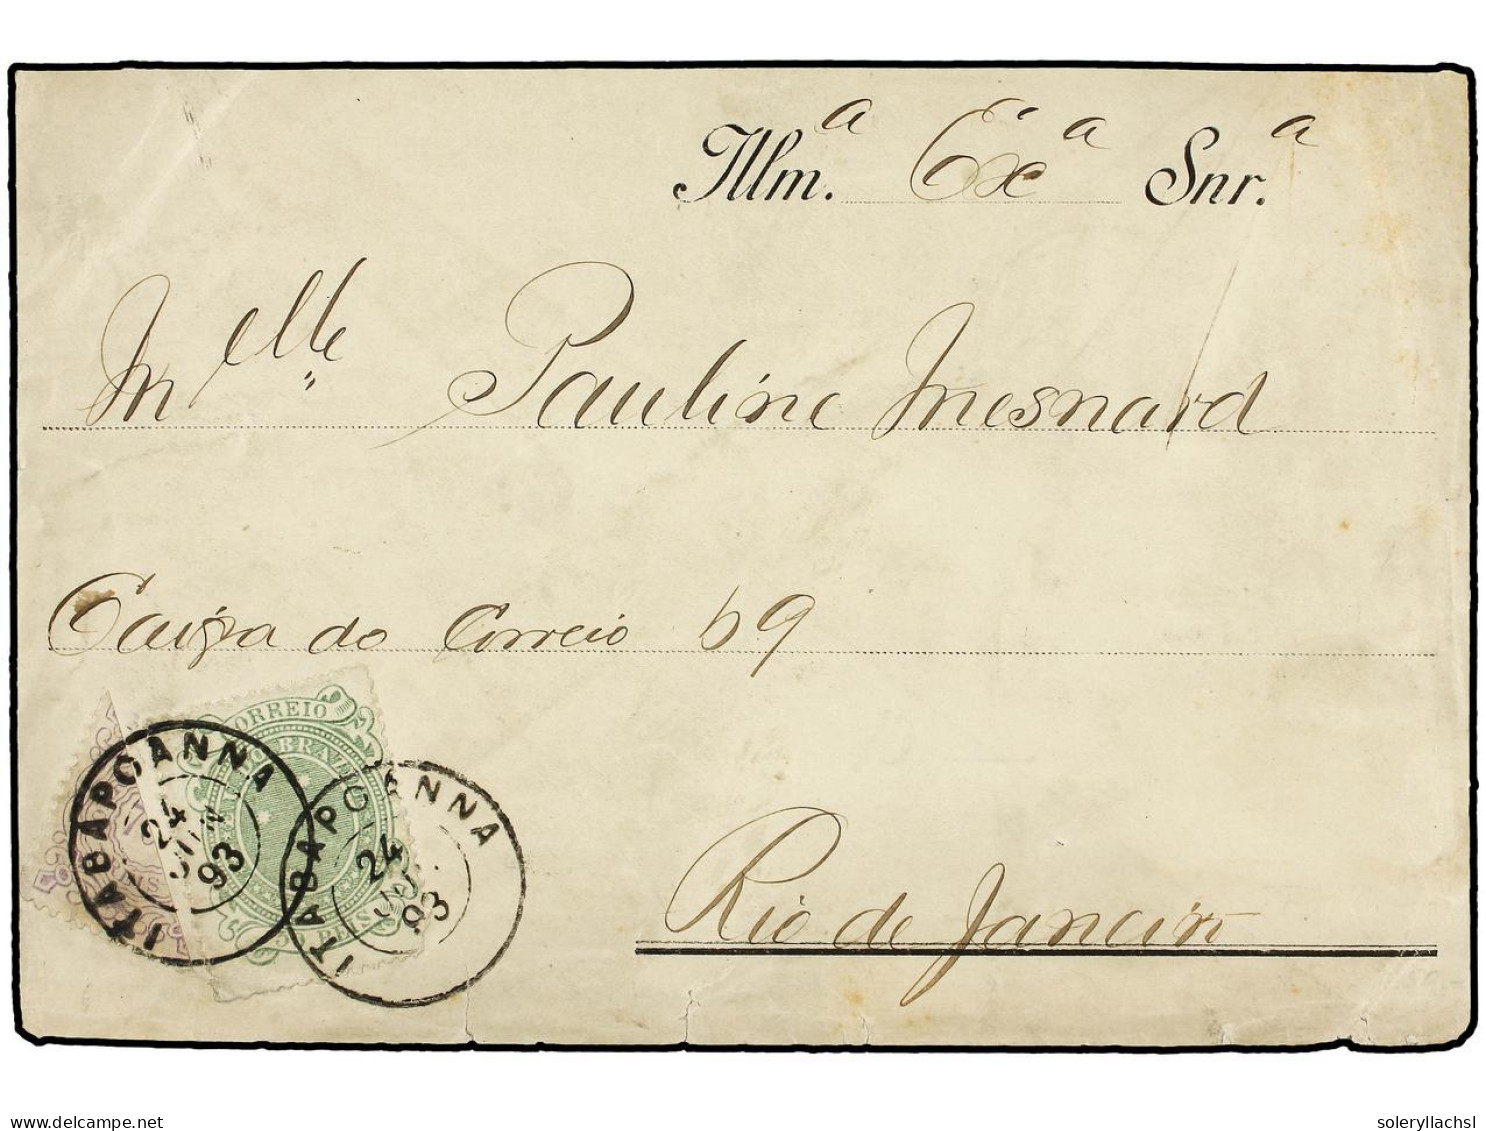 Illm.a Exa Snr.a
Melle Pauline Mesnard
Caixa do Correio 69
Rio de Janeiro
CORREIO
BRAZIL
REIS
ITABAPOANNA
24
JUN
93
ITABAPOANNA
24
93
delcampe.net
soleryllachsl